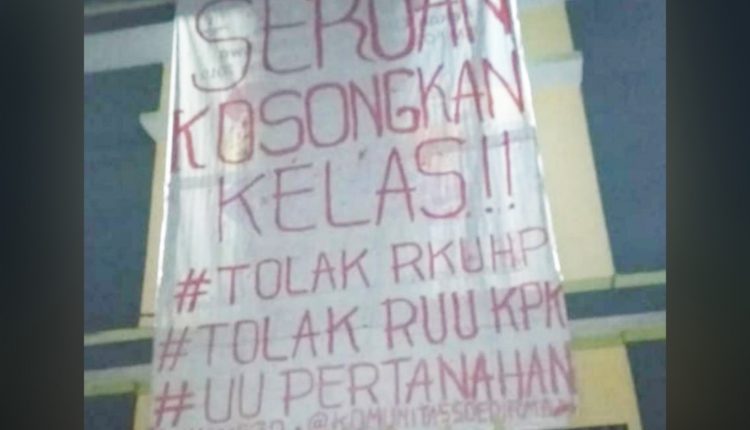 SERUAN
KOSONGKAN
KELAS!!
#TOLAK RKUHP
#TOLAK RUU KPK
#UU PERTANAHAN